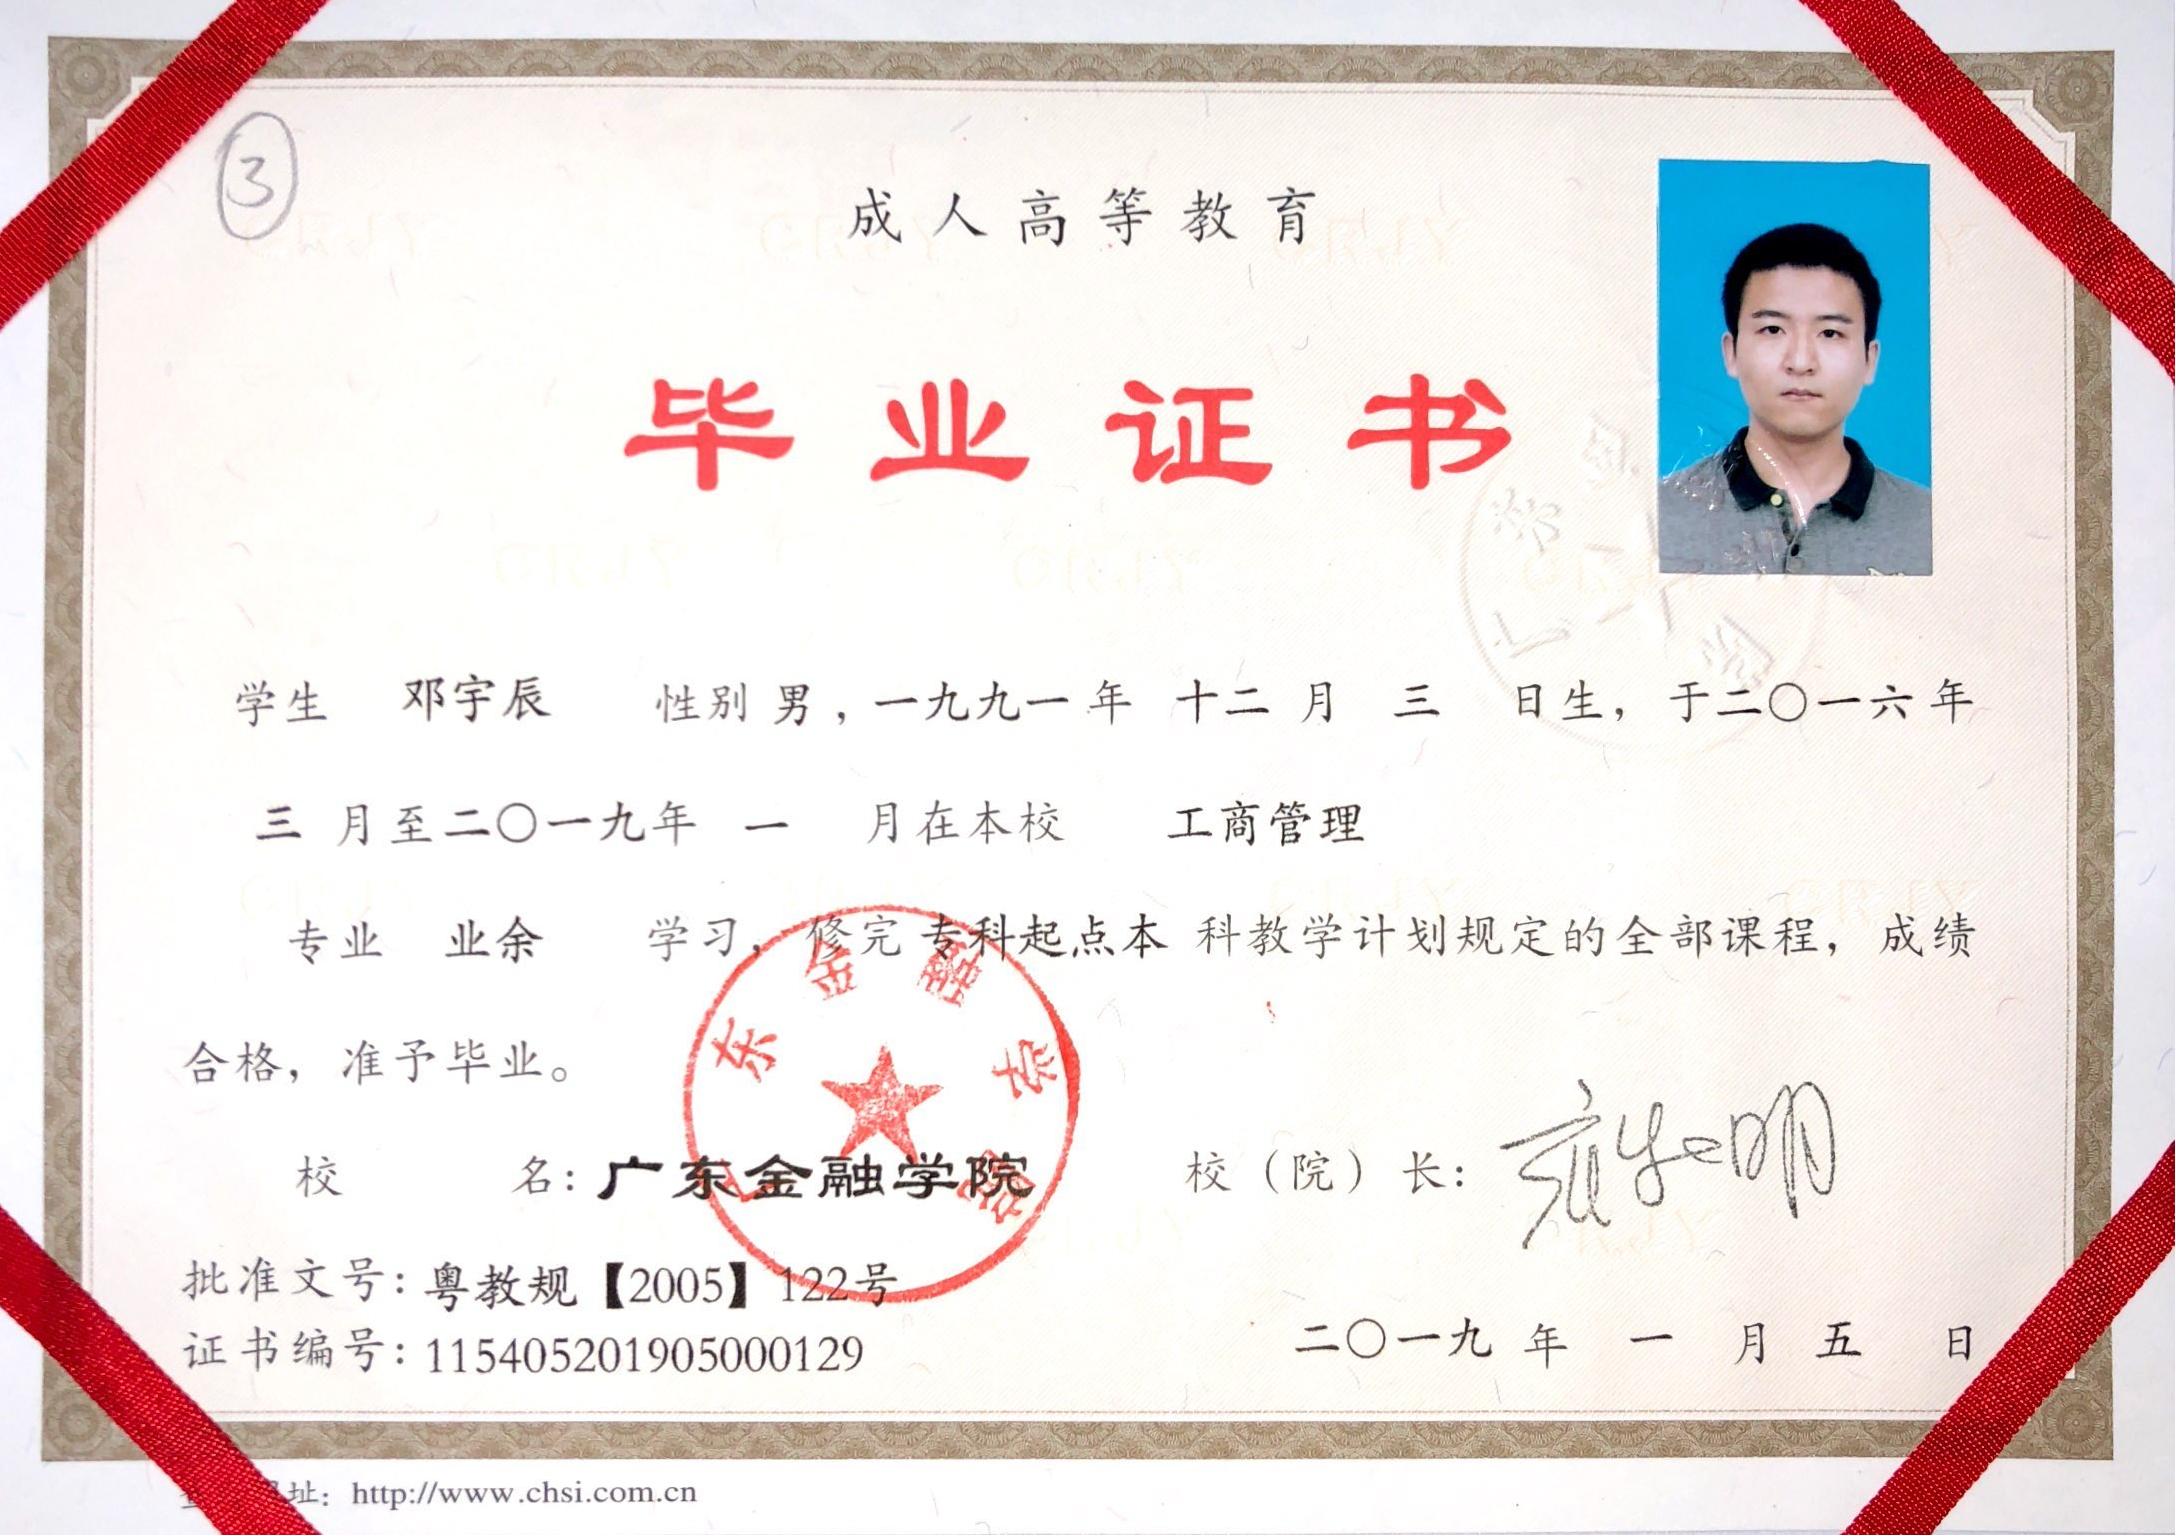 3
成人高等教育
毕业证书
学生 邓宇辰 性别 男，一九九一年 十二 月 三 日生，于二〇一六年
三 月至二〇一九年 一 月在本校 工商管理
专业 业余 学习，修完 专科起点本 科教学计划规定的全部课程，成绩
合格，准予毕业。
校 名：广东金融学院 校（院）长：
东金融学院
批准文号：粤教规【2005】122号
证书编号：115405201905000129
二〇一九 年 一 月 五 日
址：http://www.chsi.com.cn